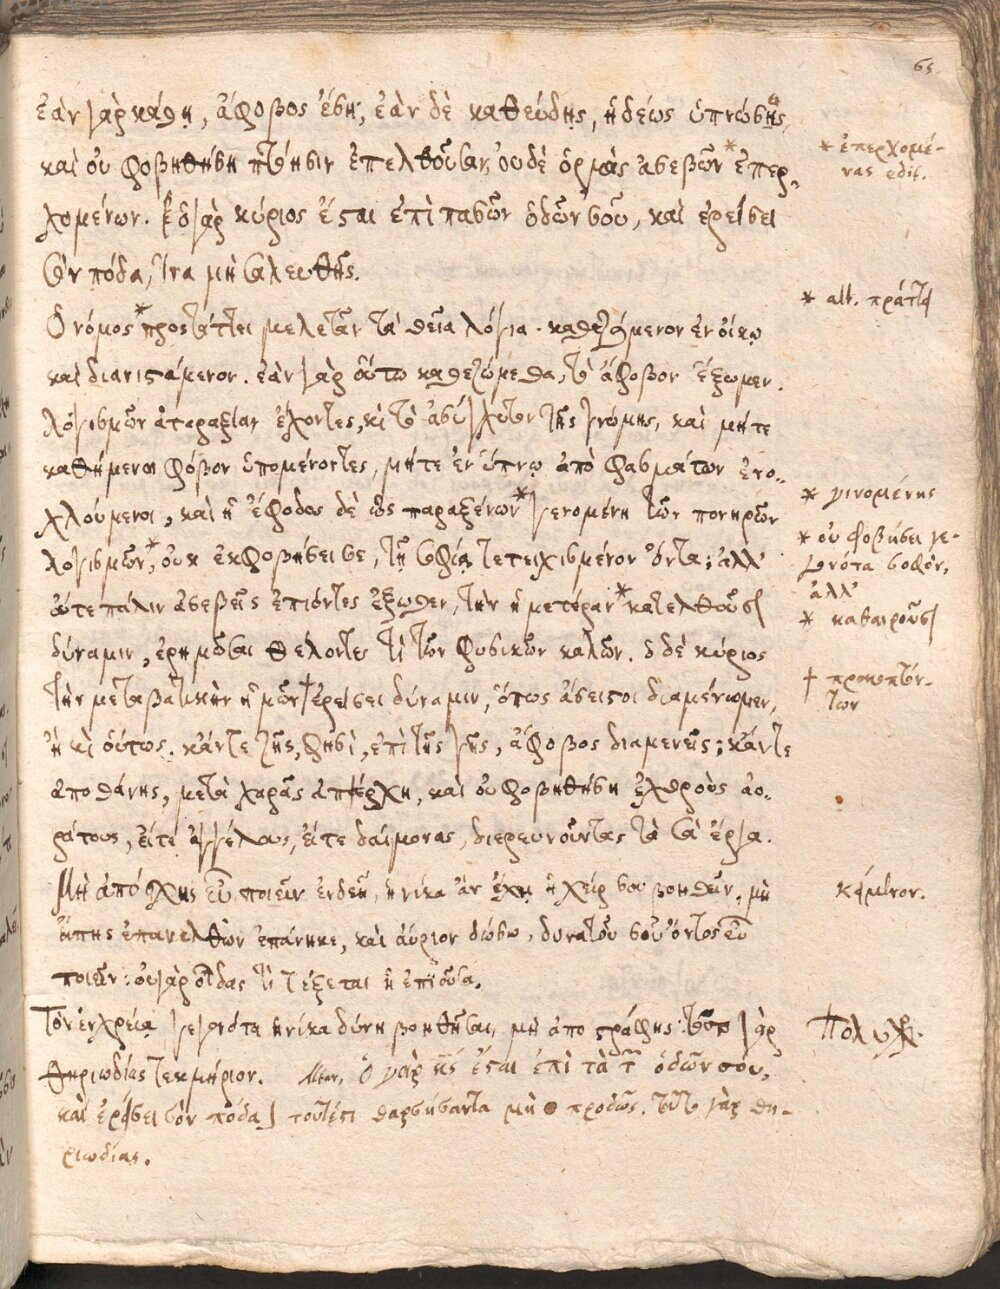 65.
ἐὰν γὰρ κάθῃ, ἄφοβος ἔσῃ; ἐὰν δὲ καθεύδῃς, ἡδέως ὑπνώσῃς,
καὶ οὐ φοβηθήσῃ πτόησιν ἐπελθοῦσαν, οὐδὲ ὁρμὰς ἀσεβῶν * ἐπερ-
χομένων. ὁ γὰρ κύριος ἔσται ἐπὶ πασῶν ὁδῶν σοῦ, καὶ ἐρείσει
σὸν πόδα, ἵνα μὴ σαλευθῇς.
* ἐπερχομέ-
νας edit.
Ὁ νόμος * προστάττει μελετᾶν τὰ θεῖα λόγια. καθεζόμενον ἐν οἴκῳ
καὶ διανιστάμενον. ἐὰν γὰρ οὕτω καθεζώμεθα, τὸ ἄφοβον ἕξωμεν.
λογισμῶν ἀταραξίαν ἔχοντες, κὶ τὸ ἀσύγχυτον τῆς γνώμης, καὶ μήτε
καθήμενοι φόβον ὑπομένοντες, μήτε ἐν ὕπνῳ ἀπὸ φασμάτων ἐνο-
χλούμενοι, καὶ ἡ ἔφοδος δὲ ὡς παραξένων * γενομένη τῶν πονηρῶν
λογισμῶν, * οὐκ ἐκφοβήσει σε, τῇ σοφίᾳ τετειχισμένον ὄντα; ἀλλ'
οὔτε πάλιν ἀσεβεῖς ἐπιόντες ἔξωθεν, τὴν ἡμετέραν * κατελθοῦσι
δύναμιν, ἐρημῶσαι θέλοντες τὶ τῶν φυσικῶν καλῶν. ὁ δὲ κύριος
τὴν μεταβατικὴν ἡμῶν † ἐρείσει δύναμιν, ὅπως ἄσειστοι διαμένωμεν,
ἢ κὶ οὕτως. κἄντε ζῇς, φησὶ, ἐπὶ τῆς γῆς, ἄφοβος διαμενεῖς; κἄντε
ἀποθάνῃς, μετὰ χαρᾶς ἀπέρχῃ, καὶ οὐ φοβηθήσῃ ἐχθροὺς ἀο-
ράτους, εἴτε ἀγγέλους, εἴτε δαίμονας, διερευνοῦντας τὰ σὰ ἔργα.
* alt. πράττει
* γινομένης
* οὐ φοβήσει γε-
γονότα σοφόν,
ἀλλ'
* καθαιροῦσι
† προκοπτόν-
των
Μὴ ἀπόσχῃς εὖ ποιεῖν ἐνδεῆ, ἡνίκα ἂν ἔχῃ ἡ χείρ σου βοηθεῖν, μὴ
εἴπῃς ἐπανελθὼν ἐπάνηκε, καὶ αὔριον δώσω, δυνατοῦ σοῦ ὄντος εὖ
ποιεῖν; οὐ γὰρ οἶδας τὶ τέξεται ἡ ἐπιοῦσα.
κείμενον.
Τὸν ἐν χρείᾳ γεγονότα ἡνίκα δύνῃ βοηθῆσαι, μὴ ἀποστραφῇς. τοῦτο γὰρ
θηριωδίας τεκμήριον. Ὁ γὰρ κς ἔσται ἐπὶ τῶν ὁδῶν σου,
καὶ ἐρείσει σὸν πόδα] τουτέστι θαρσήσαντα μὴ προδῶς. τοῦτο γὰρ θη-
ριωδίας.
Πολυχρ.